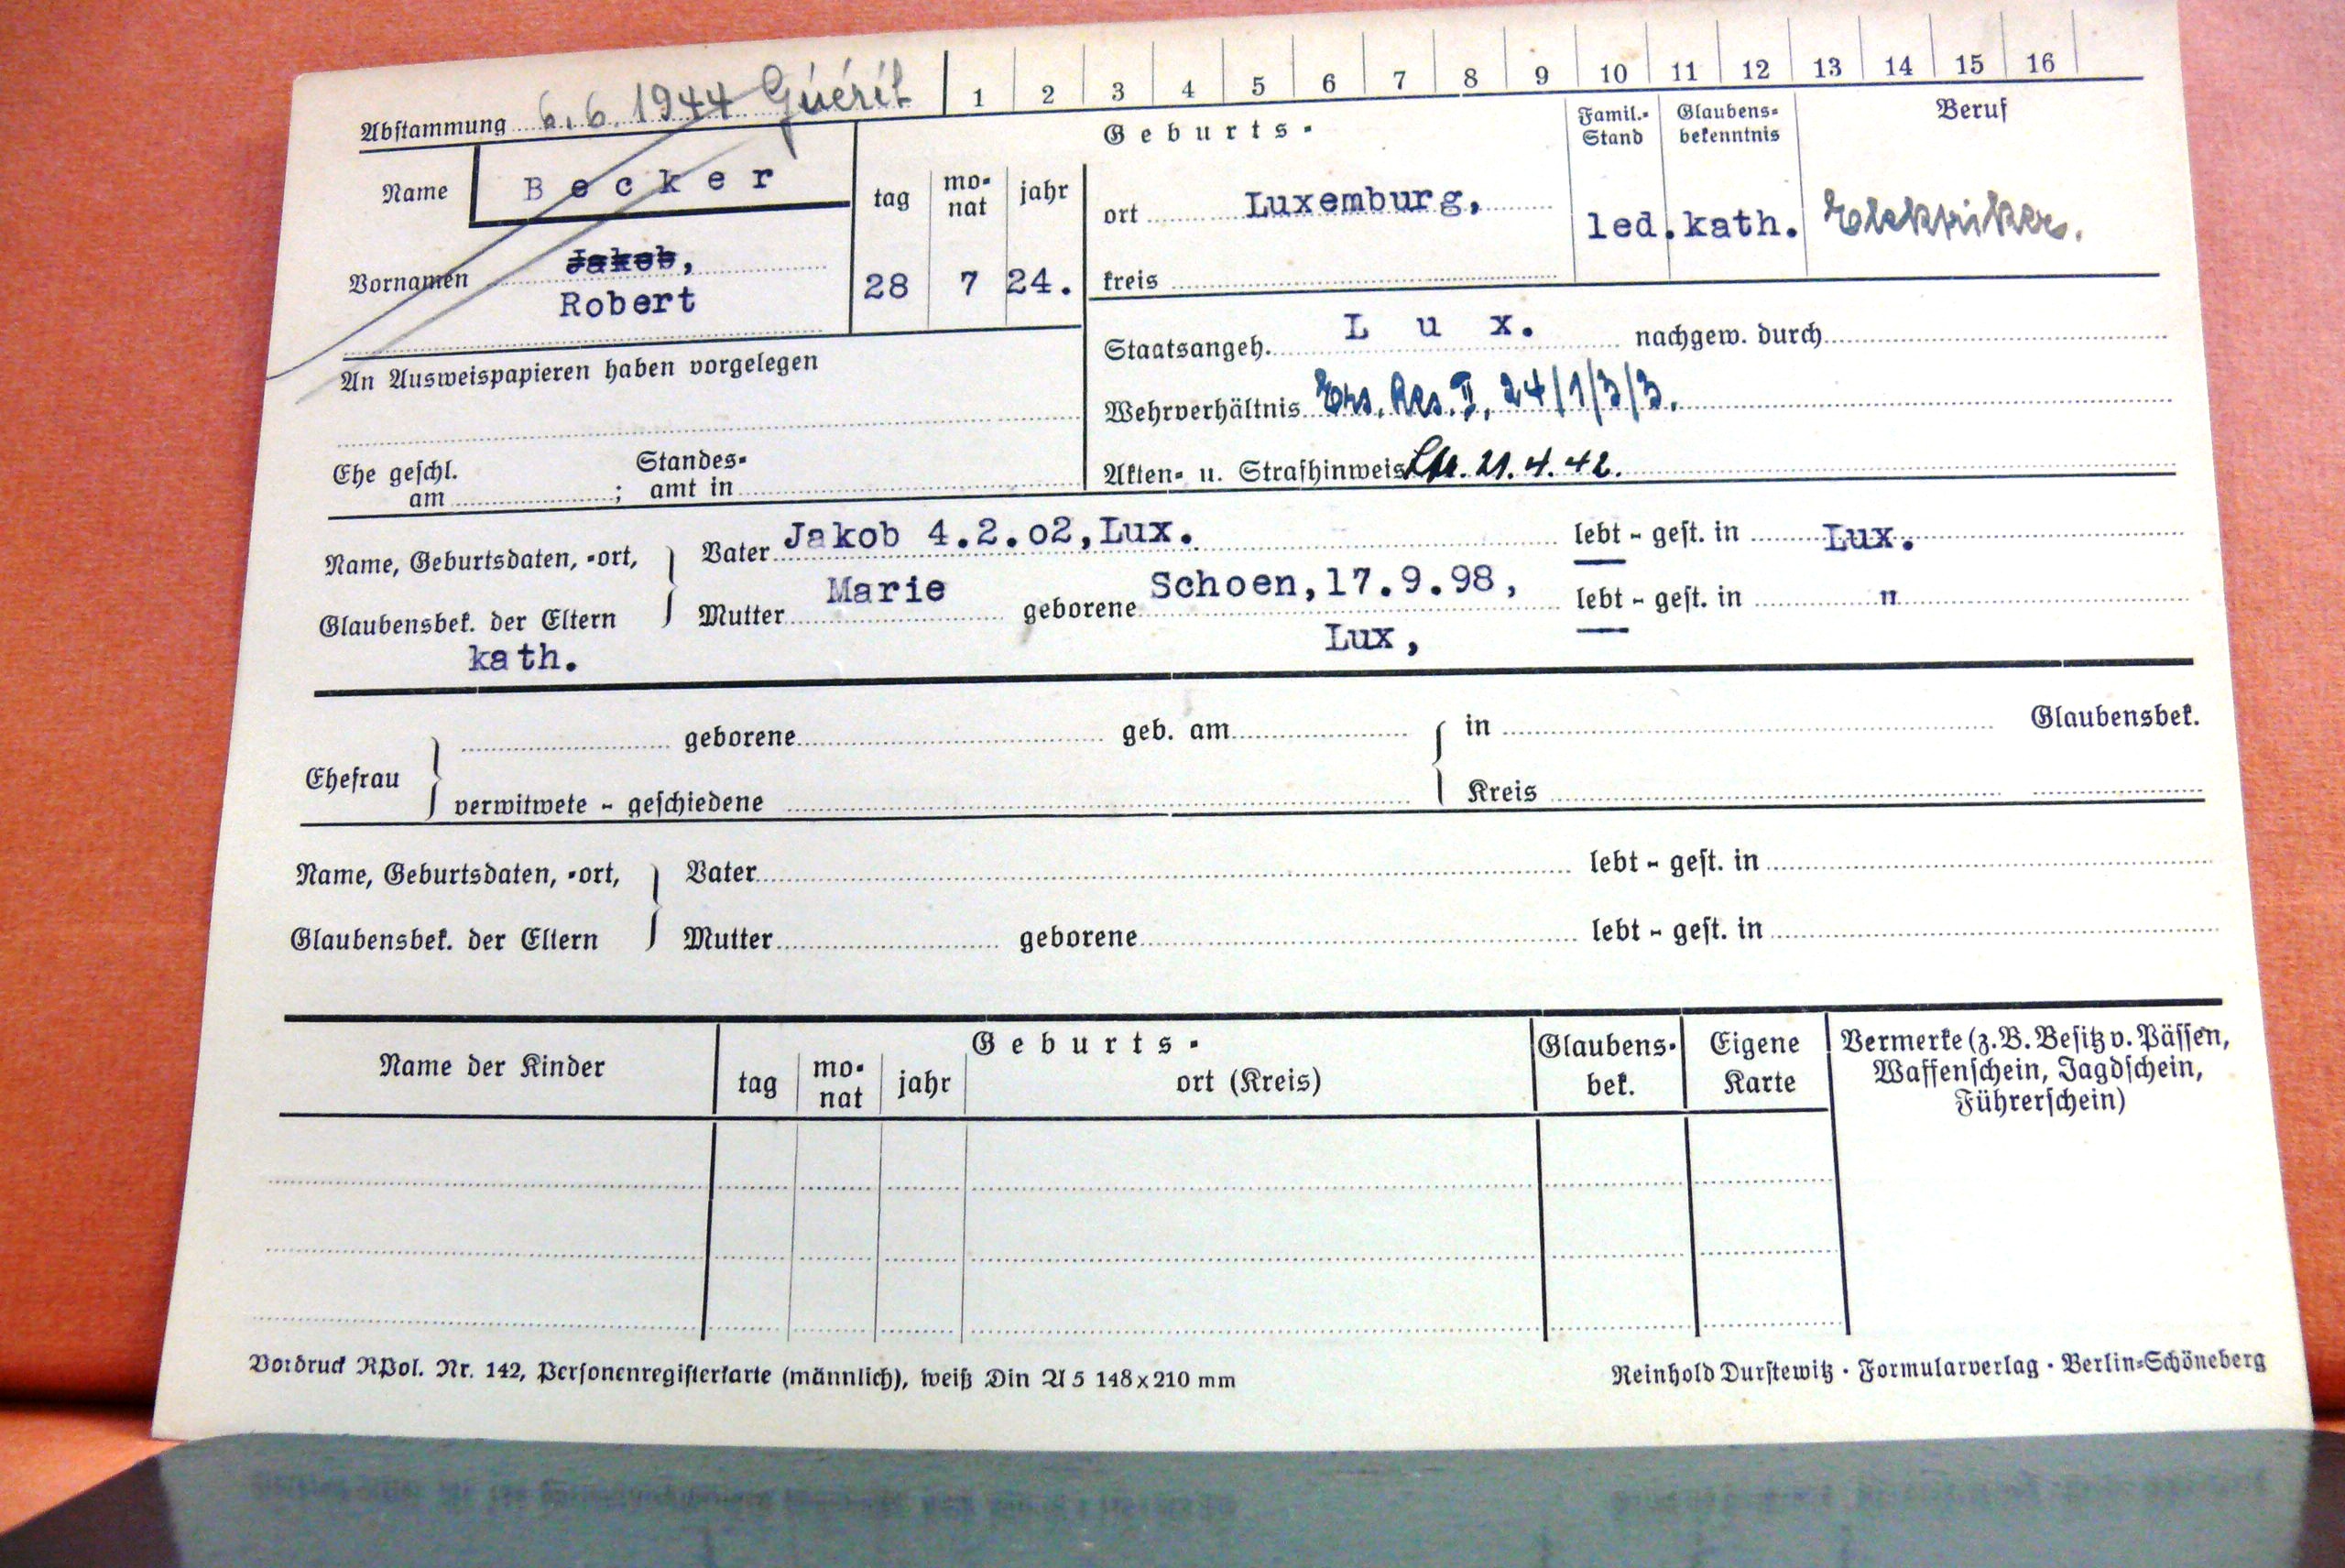 1 2 3 4 5 6 7 8 9 10 11 12 13 14 15 16
Abstammung 6.6.1944 Guéret
Geburts-
Famil.-Stand
Glaubens-bekenntnis
Beruf
Name Becker
tag
mo-nat
jahr
ort Luxemburg,
led. kath. Elektriker.
Vornamen Jakob,
Robert
28 7 24.
kreis
Staatsangeh. Lux. nachgew. durch
An Ausweispapieren haben vorgelegen
Wehrverhältnis Ers. Res. II, 24/1/3/3.
Akten- u. Strafhinweis 21.4.42.
Ehe geschl. am ; Standes-amt in
Name, Geburtsdaten, -ort,
Glaubensbek. der Eltern
kath.
Vater Jakob 4.2.o2, Lux. lebt - gest. in Lux.
Mutter Marie geborene Schoen, 17.9.98, lebt - gest. in "
Lux,
Ehefrau
geborene geb. am in Glaubensbek.
verwitwete - geschiedene Kreis
Name, Geburtsdaten, -ort,
Glaubensbek. der Eltern
Vater lebt - gest. in
Mutter geborene lebt - gest. in
Name der Kinder
Geburts-
tag
mo-nat
jahr
ort (Kreis)
Glaubens-bek.
Eigene Karte
Vermerke (z.B. Besitz v. Pässen,
Waffenschein, Jagdschein,
Führerschein)
Vordruck RPol. Nr. 142, Personenregisterkarte (männlich), weiß Din A 5 148x210 mm
Reinhold Durstewitz · Formularverlag · Berlin-Schöneberg